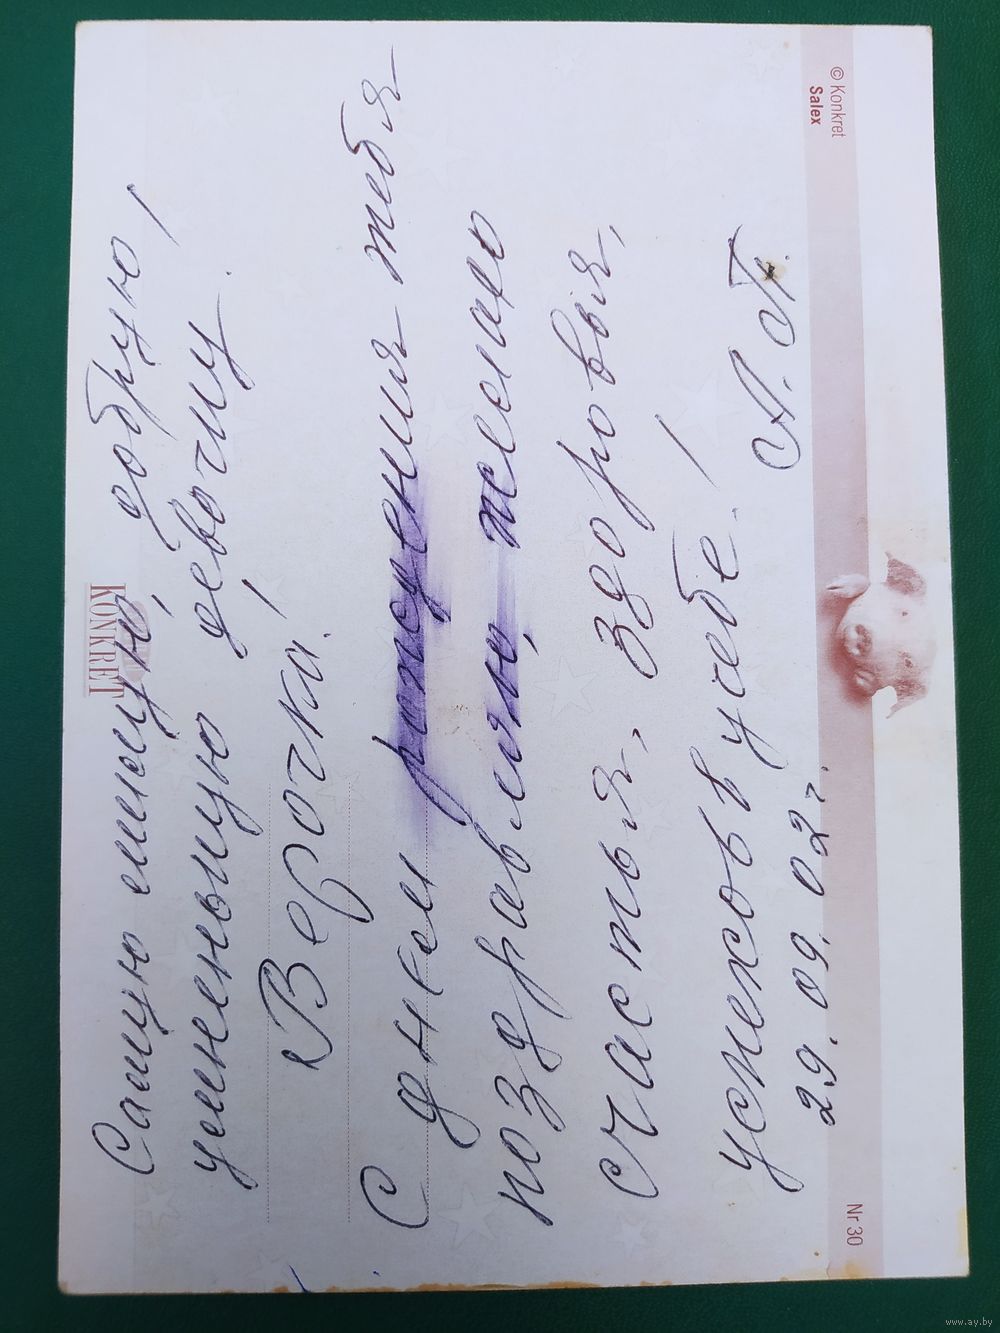 Самую милую, добрую
умненькую девочку.
Верочка!
С днем рождения тебя
поздравляю, желаю
счастья, здоровья,
успехов в учебе!
А. П.
29. 09. 02 г.
KONKRET
© Konkret
Salex
Nr 30
www.ay.by